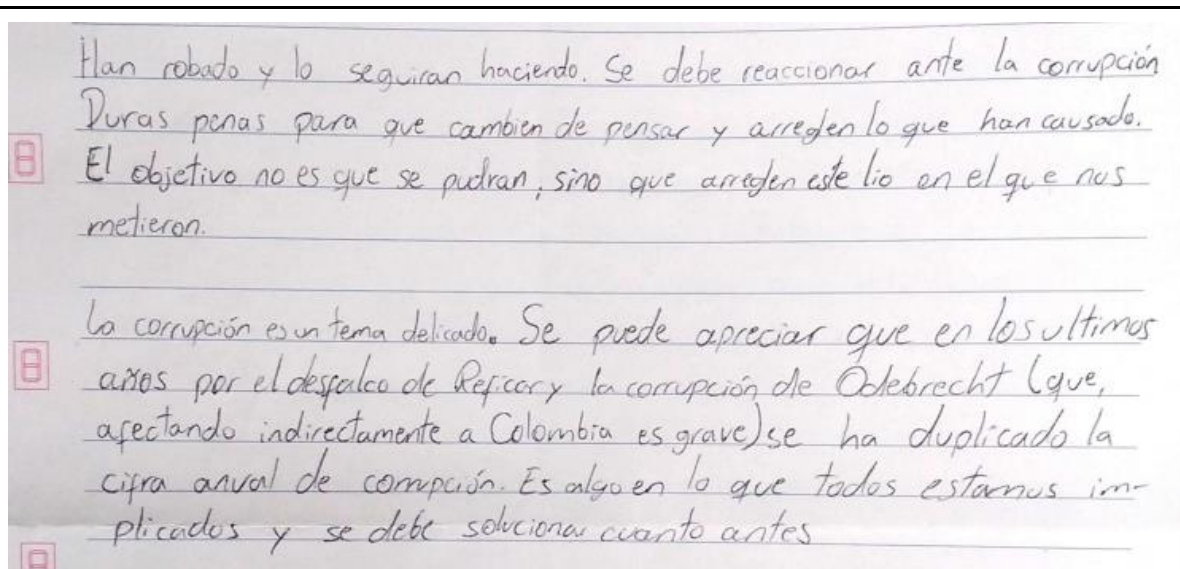 Han robado y lo seguiran haciendo. Se debe reaccionar ante la corrupción
Duras penas para que cambien de pensar y arreglen lo que han causado.
El objetivo no es que se pudran, sino que arreglen este lio en el que nos
metieron.
La corrupción es un tema delicado. Se puede apreciar que en los ultimos
años por el desfalco de Reficar y la corrupción de Odebrecht (que,
afectando indirectamente a Colombia es grave) se ha duplicado la
cifra anual de corrupción. Es algo en lo que todos estamos im-
plicados y se debe solucionar cuanto antes